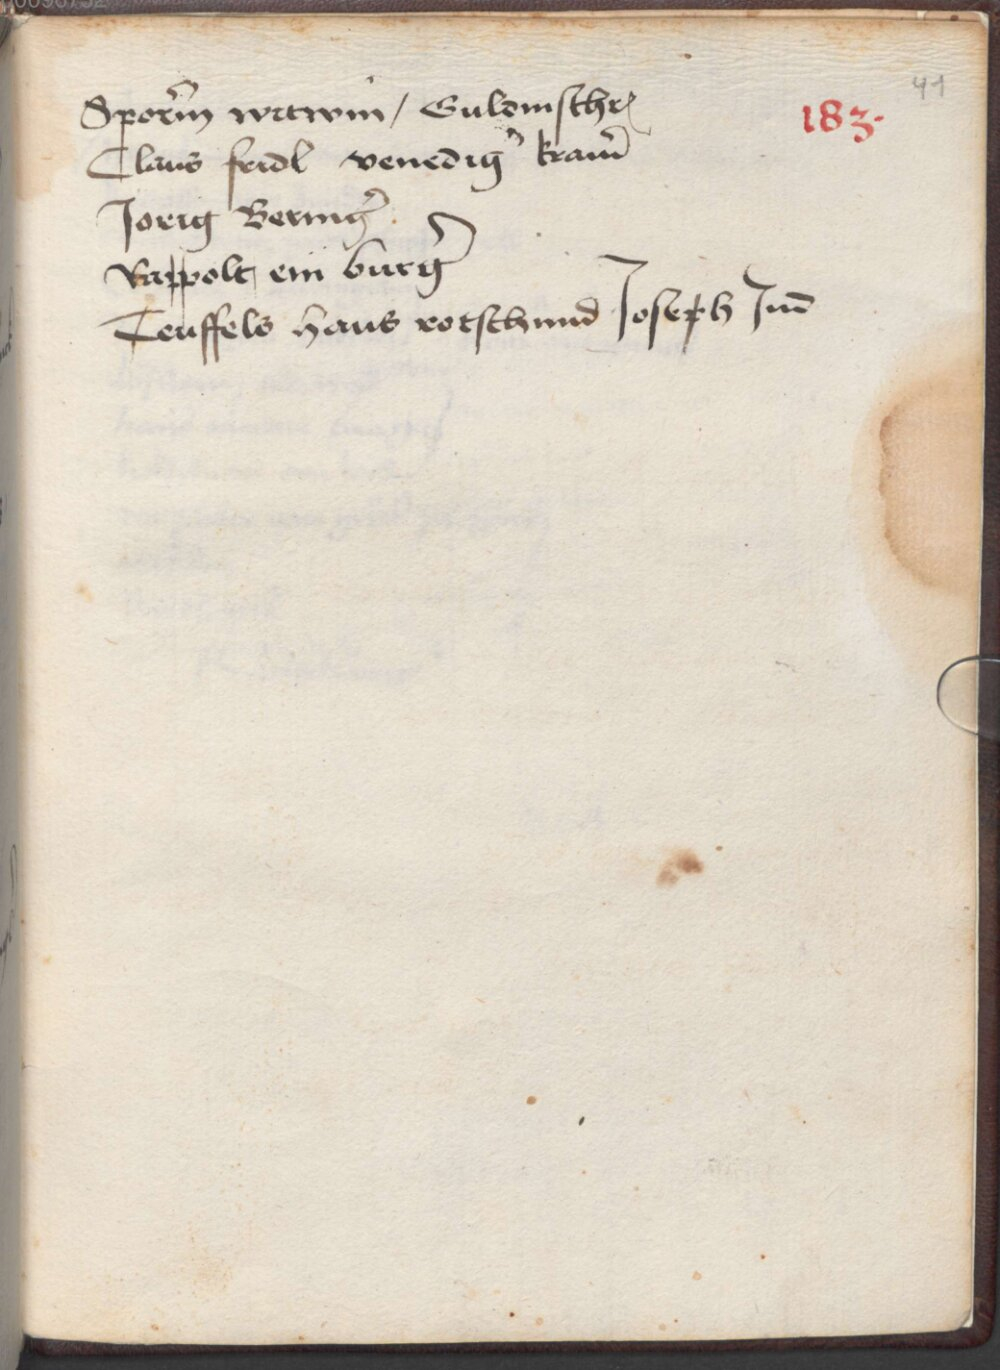 41
183.
Sporin witwin / Guldinschr
Claus feidl venedig kramer
Jorig Bering
Rappolt ein burger
Teuffels haus rotschmid Joseph Jud